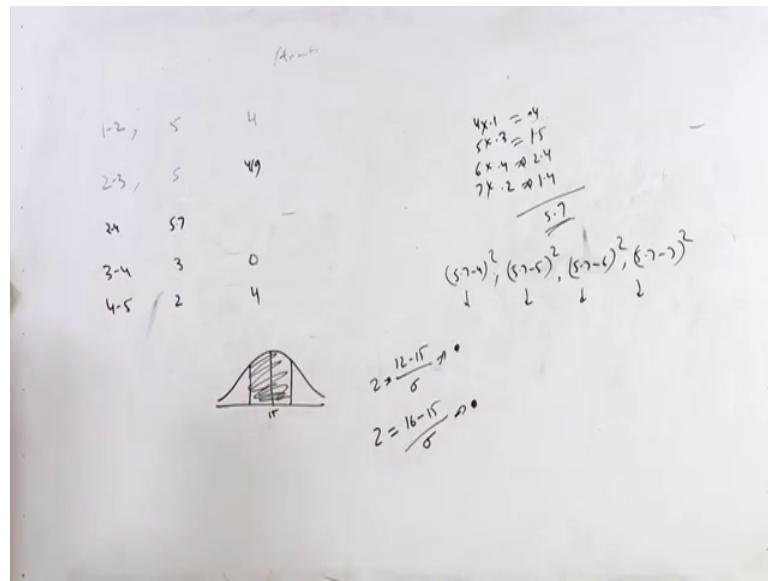 1-2, 5 4
2-3, 5 4/9
2-4 5.7
3-4 3 0
4-5 2 4
4x.1 = .4
5x.3 = 1.5
6x.4 => 2.4
7x.2 => 1.4
5.7
(5.7-4)², (5.7-5)², (5.7-6)², (5.7-7)²
↓ ↓ ↓ ↓
15
Z => 12-15/σ =>
Z = 16-15/σ =>